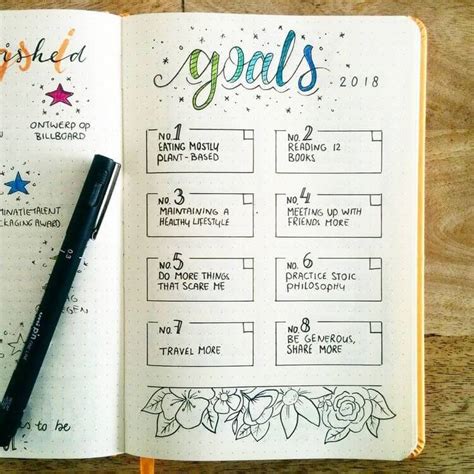 goals
2018
ished
ONTWERP OP
BILLBOARD
No. 1
EATING MOSTLY
PLANT-BASED
No. 2
READING 12
BOOKS
No. 3
MAINTAINING A
HEALTHY LIFESTYLE
No. 4
MEETING UP WITH
FRIENDS MORE
No. 5
DO MORE THINGS
THAT SCARE ME
No. 6
PRACTICE STOIC
PHILOSOPHY
No. 7
TRAVEL MORE
No. 8
BE GENEROUS,
SHARE MORE
to be